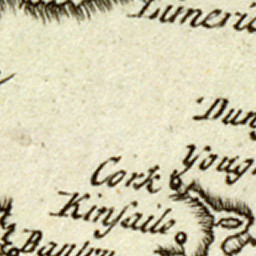 Lumeric
Dun
Yough
Cork
Kinſaile
Bantry